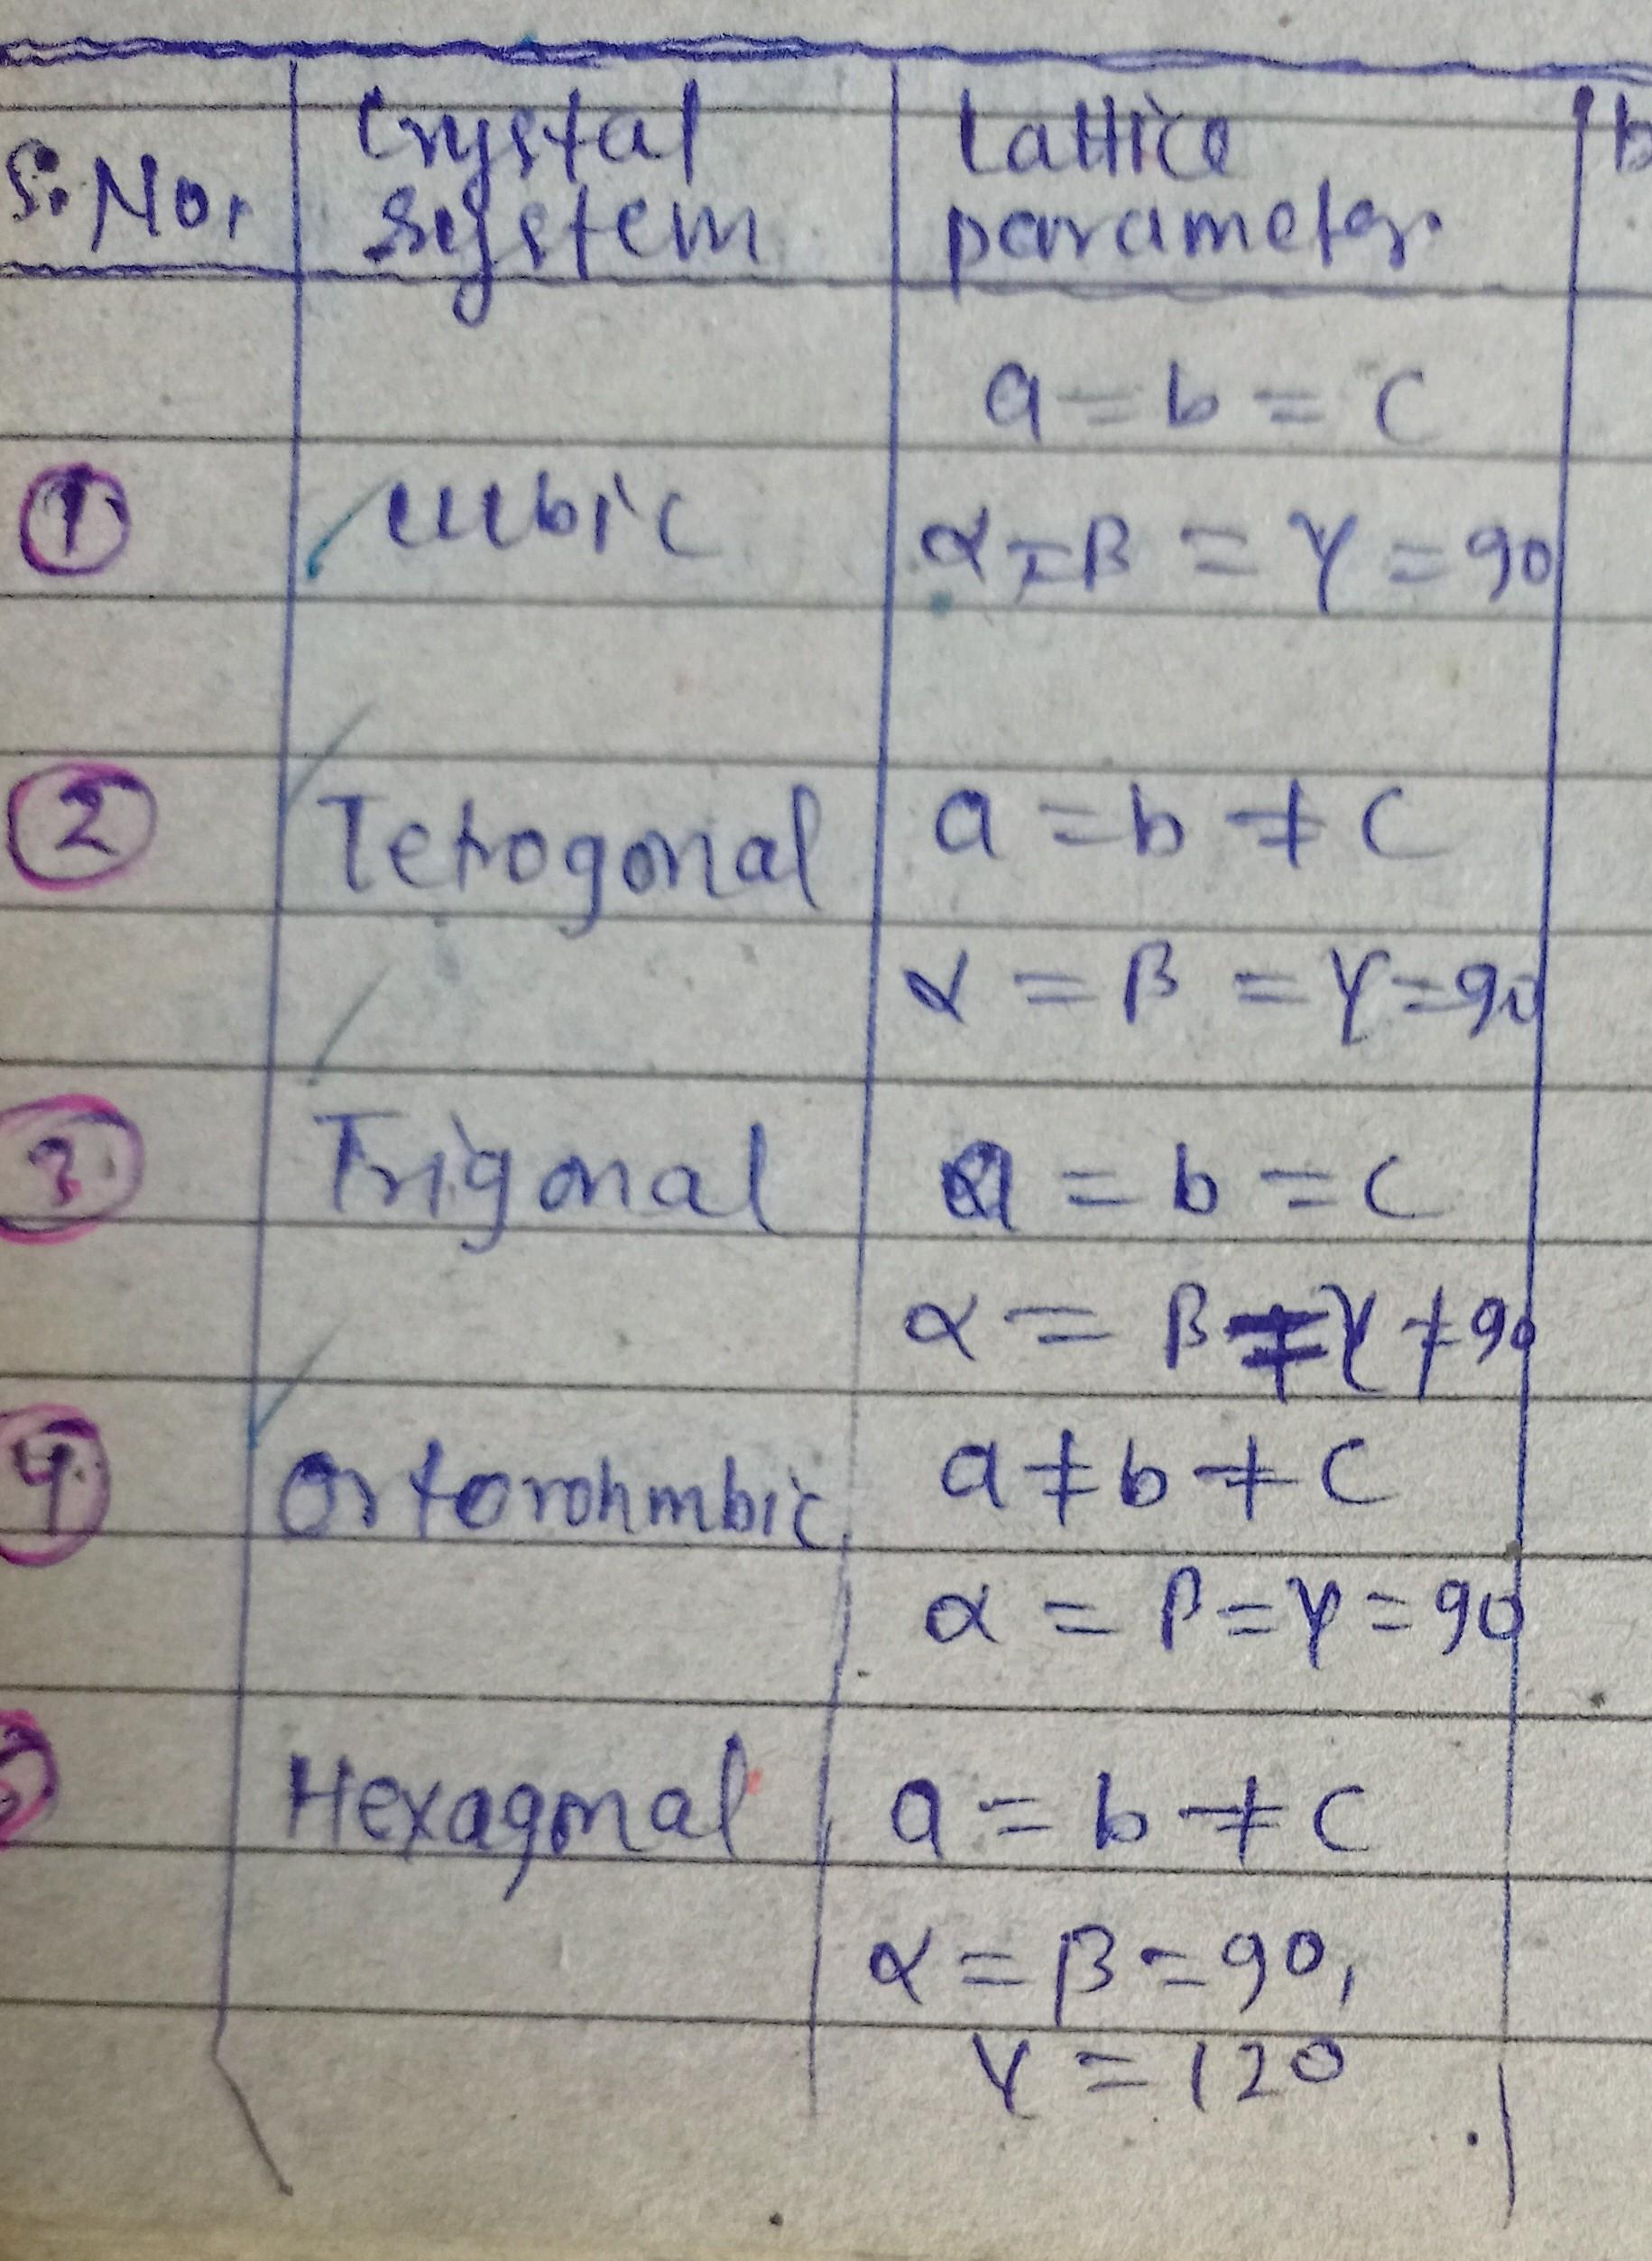 S. No. Crystal system Lattice parameter
a = b = c
① cubic α = β = γ = 90
② Tetrogonal a = b ≠ c
α = β = γ = 90
③ Trigonal a = b = c
α = β ≠ γ ≠ 90
④ Ortorohmbic a ≠ b ≠ c
α = β = γ = 90
Hexagonal a = b ≠ c
α = β = 90,
γ = 120